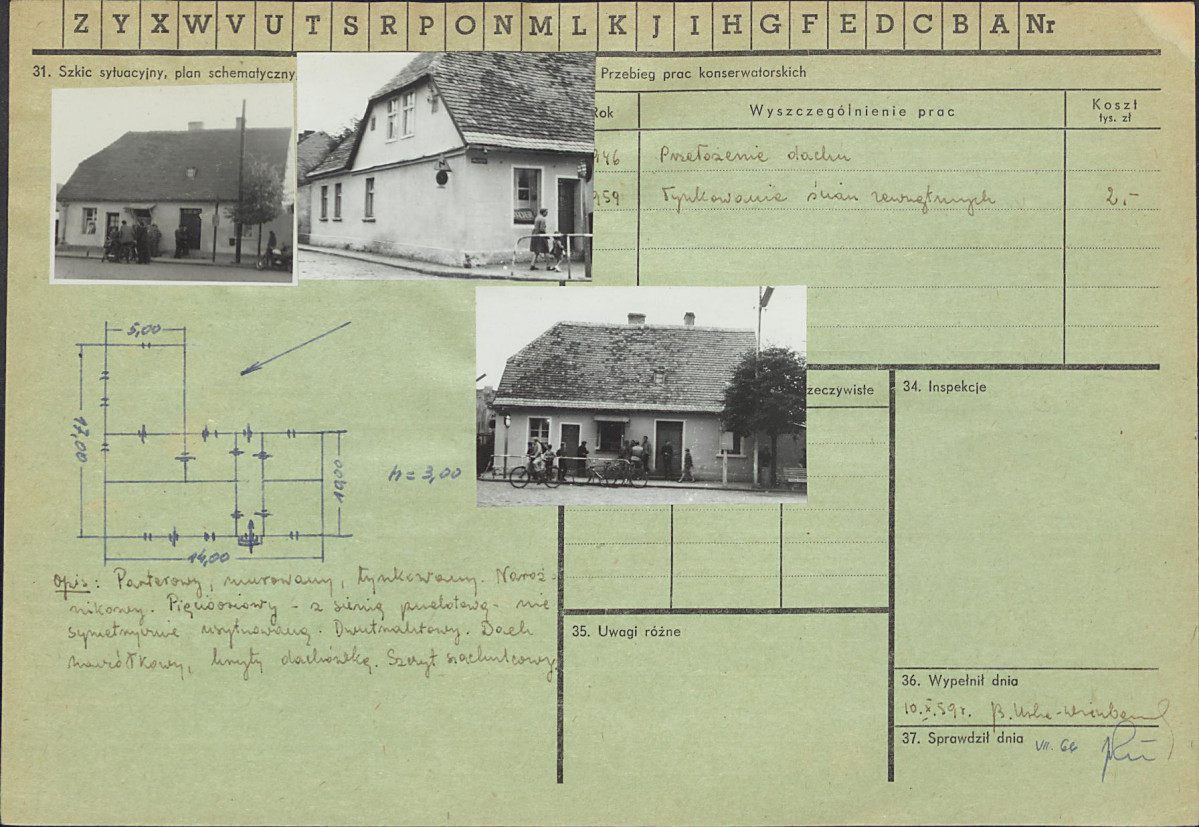 Z Y X W V U T S R P O N M L K J I H G F E D C B A Nr
31. Szkic sytuacyjny, plan schematyczny
Przebieg prac konserwatorskich
Rok
Wyszczególnienie prac
Koszt
tys. zł
946 Przełożenie dachu
959 Tynkowanie ścian zewnętrznych 2,-
5,00
17,00
10,00
h = 3,00
14,00
Opis: Parterowy, murowany, tynkowany. Naroż-
nikowy. Pięcioosiowy - z sienią przelotową - nie
symetrycznie usytuowaną. Dwutraktowy. Dach
naczółkowy, kryty dachówką. Szczyt szachulcowy.
rzeczywiste
34. Inspekcje
35. Uwagi różne
36. Wypełnił dnia
10.X.59r. B.
37. Sprawdził dnia
VII. 66